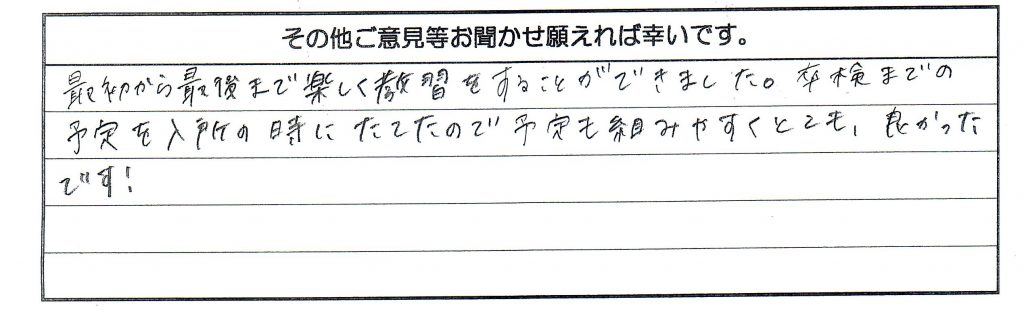 その他ご意見等お聞かせ願えれば幸いです。
最初から最後まで楽しく教習をすることができました。卒検までの
予定を入所の時にたてたので予定も組みやすくとても、良かった
です!